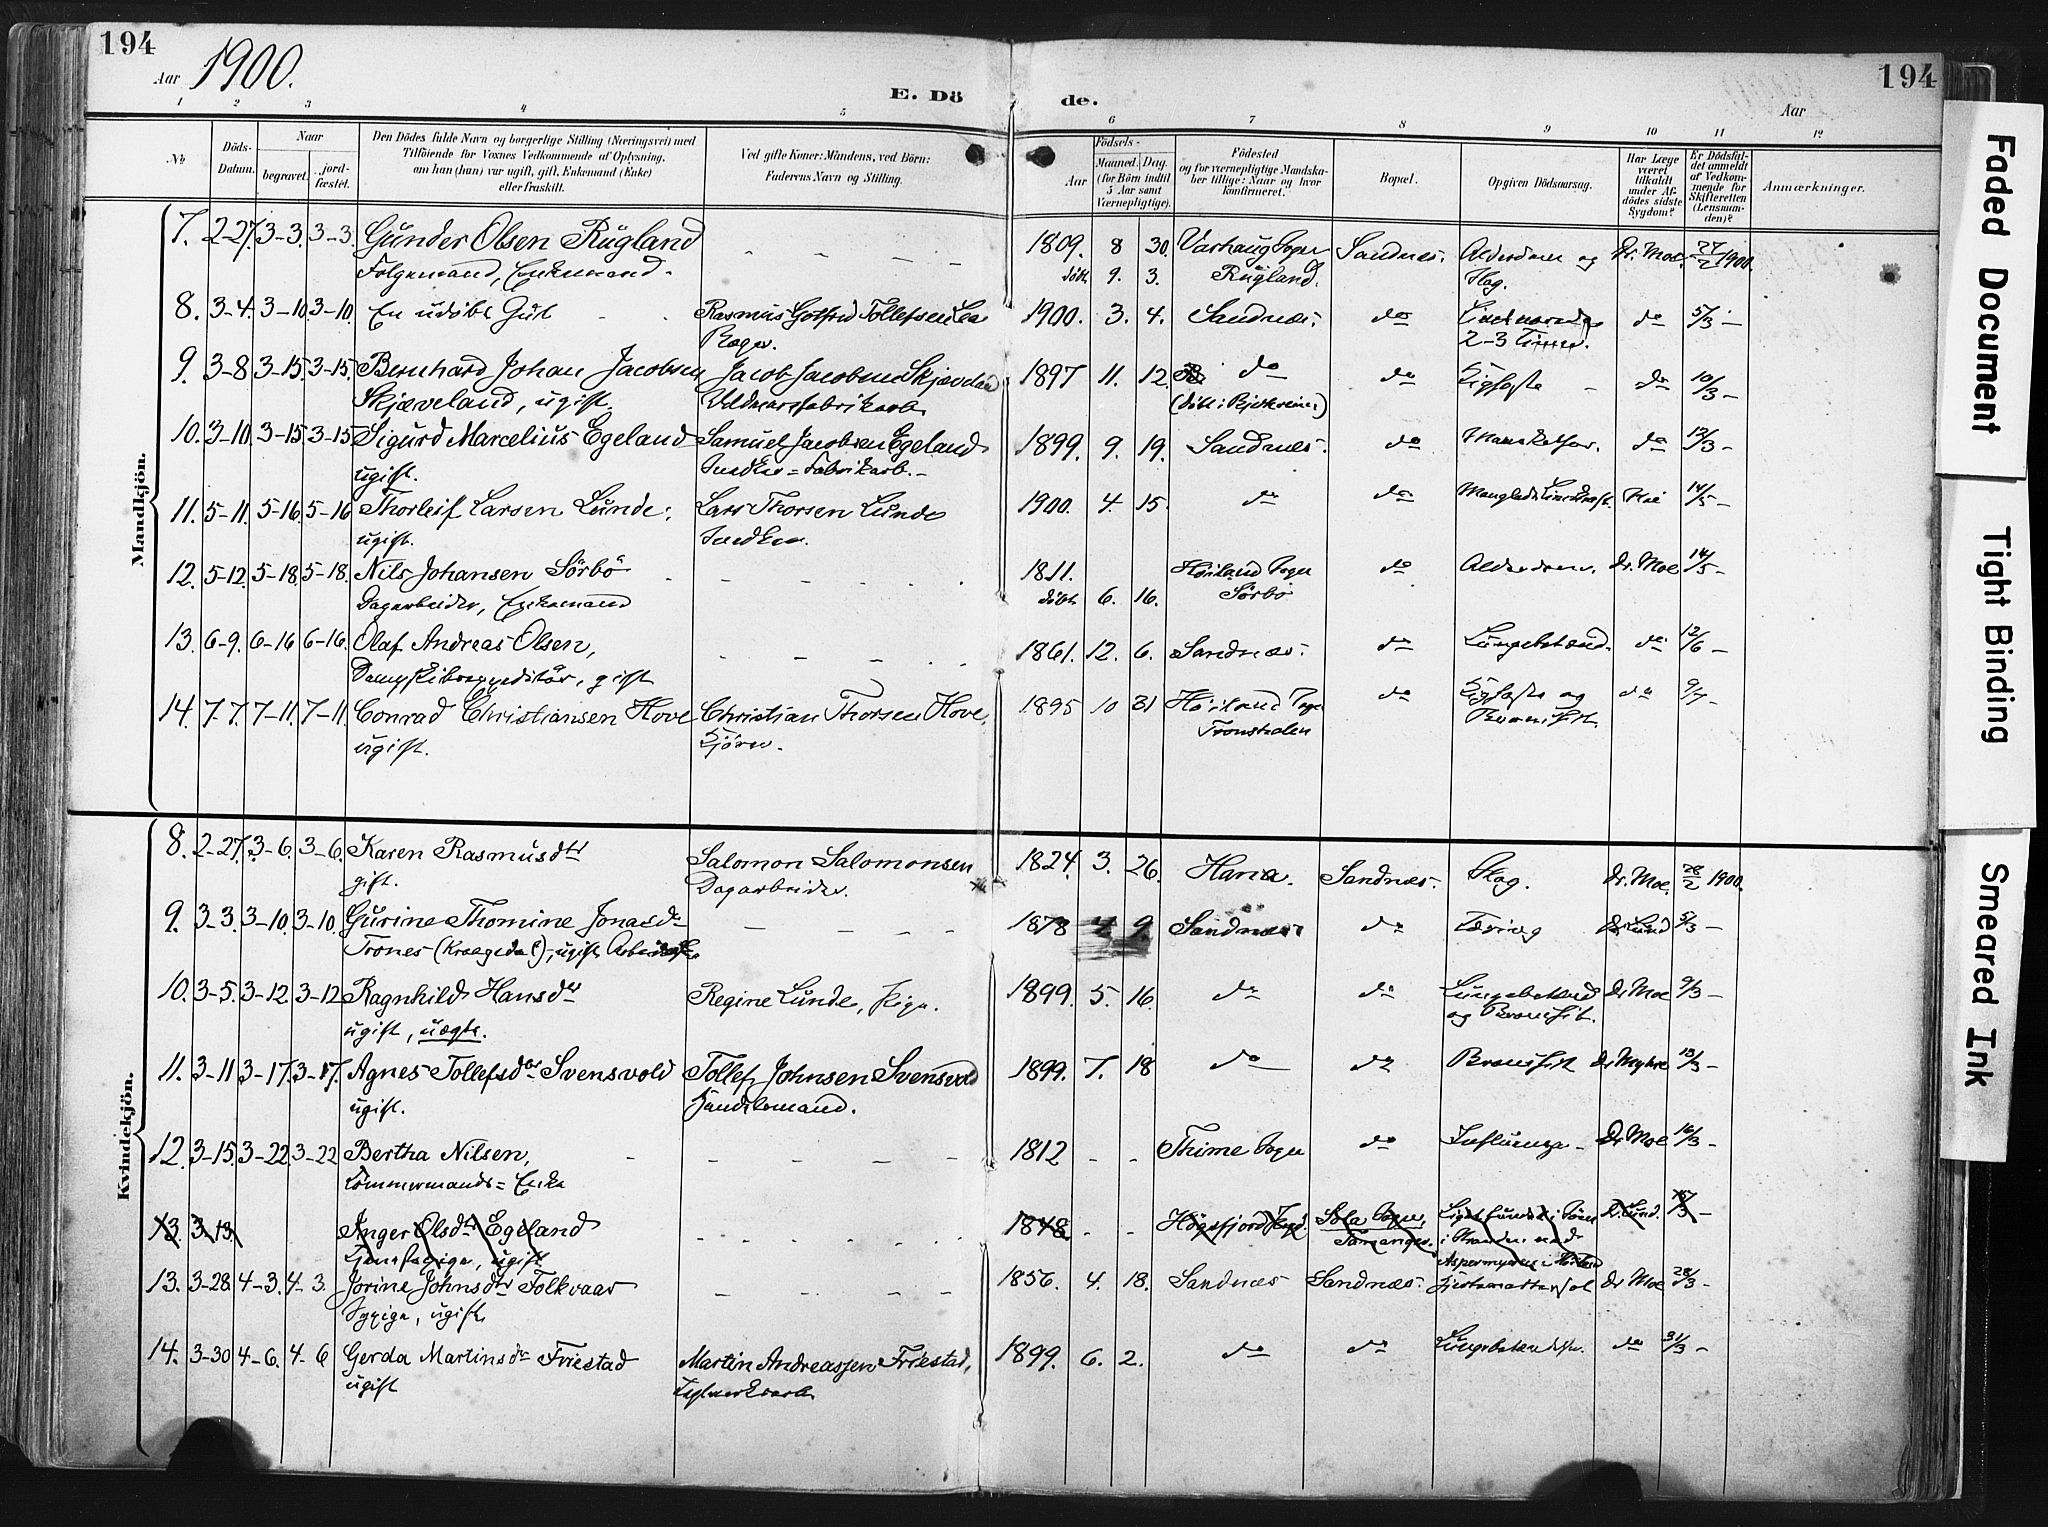 194
Aar 1900.
E. Dö
de.
Aar
194
1 2 3 4 5 6 7 8 9 10 11 12
No
Döds-Datum.
Naar
begravet.
jord-fæstet.
Den Dödes fulde Navn og borgerlige Stilling (Næringsvei) med
Tilföiende for Voxnes Vedkommende af Oplysning,
om han (hun) var ugift, gift, Enkemand (Enke)
eller fraskilt.
Ved gifte Koner: Mandens, ved Börn:
Faderens Navn og Stilling.
Födsels-
Aar
Maaned. Dag.
(for Börn indtil
5 Aar samt
Værnepligtige).
Födested
og for værnepligtige Mandska-
ber tillige: Naar og hvor
konfirmeret.
Bopæl.
Opgiven Dödsaarsag.
Har Læge
været
tilkaldt
under Af-
dödes sidste
Sygdom?
Er Dödsfal-
det anmeldt
af Vedkom-
mende for
Skifteretten
(Lensman-
den)?
Anmærkninger.
Mandkjön.
7. 2-27. 3-3. 3-3. Gunder Olsen Rugland - - - - 1809. 8 30. Varhaug Sogn Sandnes. Alderdom og Dr. Moe. 27/2 1900.
Folgemand, Enkemand. døbt 9. 3. Rugland. Slag.
8. 3-4. 3-10. 3-10. En udøbt Gut - - Rasmus Gotfred Tollefsen Lea 1900. 3. 4. Sandnæs. do do 5/3 -
Bager. 2-3 Timer.
9. 3-8 3-15. 3-15. Bernhard Johan Jacobsen Jacob Jacobsen Skjæveland 1897 11. 12. do do Kighoste - do 10/3 -
Skjæveland, ugift. Uldvarefabrikarb. (døbt i Bjerkreim)
10. 3-10. 3-15. 3-15 Sigurd Marcelius Egeland Samuel Jacobsen Egeland 1899. 9. 19. Sandnes. do do 12/3 -
ugift. Snedker = Fabrikarb. -
11. 5-11. 5-16. 5-16 Thorleif Larsen Lunde. Lars Thorsen Lunde 1900. 4. 15. do do Mangl. Livskraft. Moe 14/5 -
ugift. Snedker.
12. 5-12. 5-18. 5-18. Nils Johansen Sörbö - - - - 1811. Höiland Sogn do Alderdom. Dr. Moe 14/5 -
Dagarbeider, Enkemand døbt 6. 16. Sörbö
13. 6-9. 6-16 6-16. Olaf Andreas Olsen, - - - - 1861. 12. 6. Sandnæs. do Lungebetænd. do 12/6 -
Dampskibsexpeditør, gift
14. 7-7. 7-11. 7-11. Conrad Christiansen Hove Christian Thorsen Hove, 1895 10 31 Höiland Sogn do Kighoste og do 9/7 -
ugift. Kjører. Tronsholen Bronchit.
Kvindekjön.
8. 2-27. 3-6. 3-6. Karen Rasmusdtr Salomon Salomonsen 1824. 3. 26. Hana. Sandnæs. Slag. Dr. Moe. 28/2 1900.
gift. Dagarbeider.
9. 3-3. 3-10. 3-10. Gurine Thomine Jonasdr - - - - 1878 4 9. Sandnæs do Tæring Dr. Lund 5/3 -
Trones (Kragedal), ugift,
10. 3-5. 3-12. 3-12 Ragnhild Hansdtr Regine Lunde, Pige. 1899. 5. 16. do do Lungebetænd Dr Moe 9/3 -
ugift, uægte. og Bronchit.
11. 3-11 3-17. 3-17. Agnes Tollefsdtr Svensvold Tollef Johnsen Svensvold 1899. 7. 18 do do Bronchit 13/3 -
ugift. Handelsmand.
12. 3-15. 3-22. 3-22 Bertha Nilsen, - - - - 1812 - - Thime Sogn do Influenza - Dr Moe 16/3 -
Tømmermands = Enke
13. 3-13. Inger Olsdtr Egeland - - - - 1848 - - Högsfjord Sogn, Sola Sogn, Ligets fundet i Søen Dr. Lund.
Tjenestepige, ugift Tananger. i Stranden ved
13. 3-28. 4-3. 4-3. Jorine Johnsdtr Folkvaar - - - - 1856. 4. 18. Sandnæs Sandnæs. Dr Moe 28/3 -
Sypige, ugift.
14. 3-30 4-6. 4-6 Gerda Martinsdr Friestad Martin Andreassen Friestad, 1899. 6. 2. do do do 31/3 -
ugift
Faded Document
Tight Binding
Smeared Ink